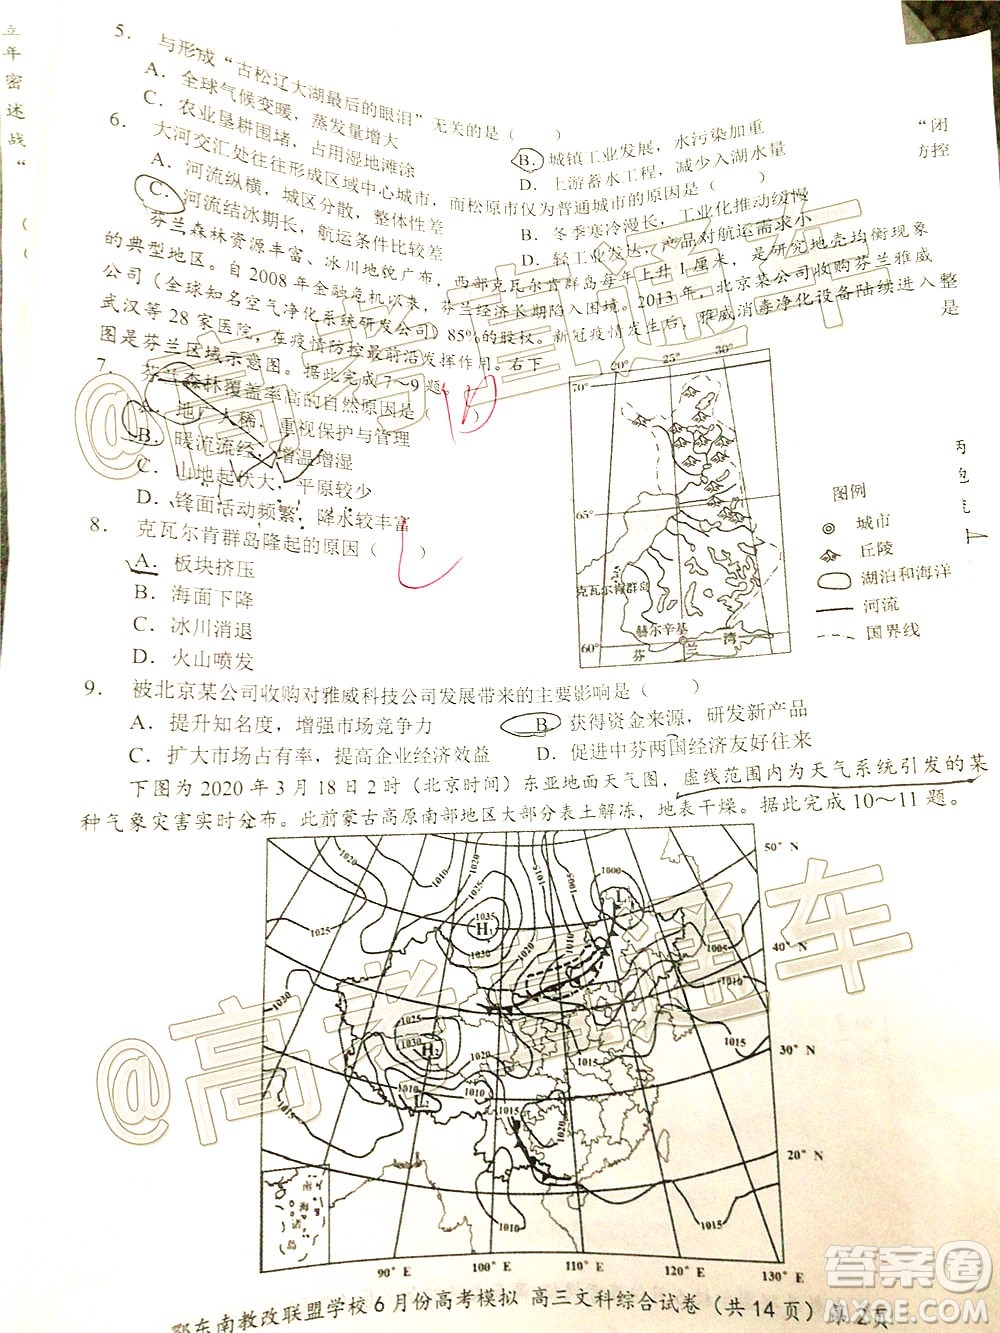 5. 与形成“古松辽大湖最后的眼泪”无关的是（ ）
A. 全球气候变暖，蒸发量增大
B. 城镇工业发展，水污染加重
C. 农业垦耕围堵，占用湿地滩涂
D. 上游蓄水工程，减少入湖水量
6. 大河交汇处往往形成区域中心城市，而松原市仅为普通城市的原因是（ ）
A. 河流纵横，城区分散，整体性差
B. 冬季寒冷漫长，工业化推动缓慢
C. 河流结冰期长，航运条件比较差
D. 轻工业发达，产品对航运需求小
芬兰森林资源丰富、冰川地貌广布，西部克瓦尔肯群岛每年上升1厘米，是研究地壳均衡现象
的典型地区。自2008年金融危机以来，芬兰经济长期陷入困境。2013年，北京某公司收购芬兰雅威
公司（全球知名空气净化系统研发公司）85%的股权。新冠疫情发生后，雅威消毒净化设备陆续进入整
武汉等28家医院，在疫情防控最前沿发挥作用。右下
图是芬兰区域示意图。据此完成7～9题。
7. 芬兰森林覆盖率高的自然原因是（ ）
A. 地广人稀，重视保护与管理
B. 暖流流经，增温增湿
C. 山地起伏大，平原较少
D. 锋面活动频繁，降水较丰富
8. 克瓦尔肯群岛隆起的原因（ ）
A. 板块挤压
B. 海面下降
C. 冰川消退
D. 火山喷发
20° 25° 30°
70°
65°
60°
克瓦尔肯群岛
赫尔辛基
芬 兰 湾
图例
城市
丘陵
湖泊和海洋
河流
国界线
9. 被北京某公司收购对雅威科技公司发展带来的主要影响是（ ）
A. 提升知名度，增强市场竞争力
B. 获得资金来源，研发新产品
C. 扩大市场占有率，提高企业经济效益
D. 促进中芬两国经济友好往来
下图为2020年3月18日2时（北京时间）东亚地面天气图，虚线范围内为天气系统引发的某
种气象灾害实时分布。此前蒙古高原南部地区大部分表土解冻，地表干燥。据此完成10～11题。
50° N
40° N
30° N
20° N
90° E 100° E 110° E 120° E 130° E
南海诸岛
鄂东南教改联盟学校6月份高考模拟 高三文科综合试卷（共14页）第2页
立年密述战”
“闭
方控
是
@高考直通车
@高考直通车
答案圈
MXQE.COM